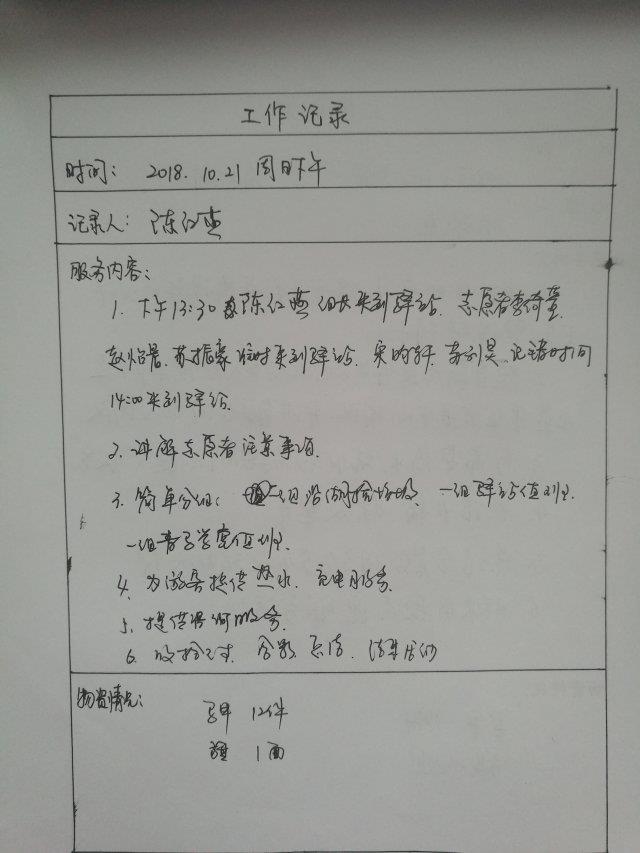 工作记录
时间： 2018.10.21 周日下午
记录人： 陈红燕
服务内容：
1. 下午13:30 陈红燕组长来到驿站. 志愿者李倚萱.
赵 晨. 苏振豪 准时来到驿站. 轩. 记错时间
14:00来到驿站.
2. 讲解志愿者注意事项.
3. 简单分组： 一组沿湖捡垃圾. 一组驿站值班.
一组亲子学堂值班.
4. 为游客提供热水. 充电服务.
5. 提供 服务.
6. 收拾 . 合影 总结.
物资情况：
马甲 12件
旗 1面